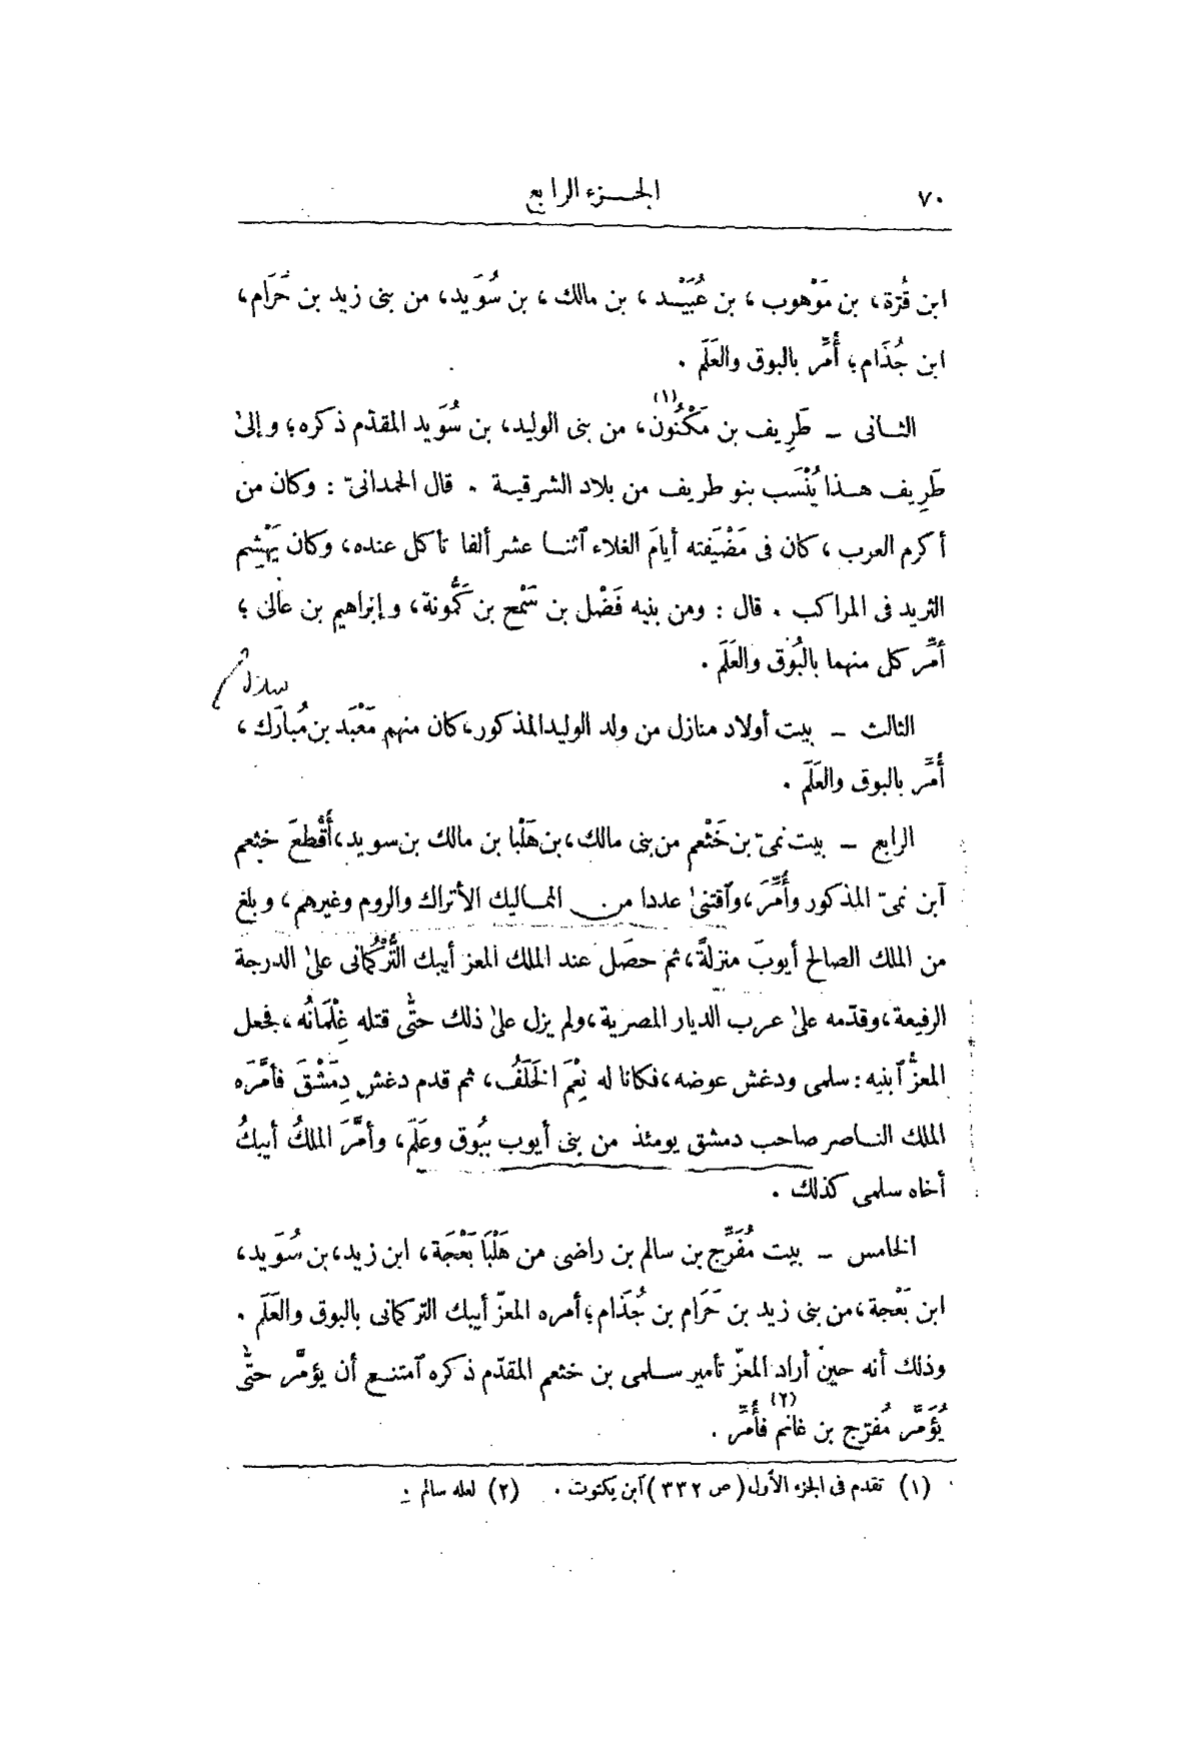 ٧٠
الجـــزء الرابع
ابن قُرّة، بن مَوْهوب، بن عُبَيْـــد، بن مالك، بن سُوَيد، من بنى زيد بن حَرَام،
ابن جُذَام؛ أُمِّر بالبوق والعَلَم .
الثــانى ـ طَرِيف بن مَكْنُون(١)، من بنى الوليد، بن سُوَيد المقدّم ذكره؛ وإلىٰ
طَرِيف هـــذا يُنْسَب بنو طريف من بلاد الشرقيـــة . قال الحمدانىّ : وكان من
أكرم العرب، كان فى مَضْيَفته أيامَ الغلاء آثنــا عشر ألفا تأكل عنده، وكان يَهْشِم
الثريد فى المراكب . قال : ومن بنيه فَضْل بن سَمْح بن كَمُّونة، وإبراهيم بن عالى؛
أمِّر كل منهما بالبُوق والعَلَم .
الثالث ـ بيت أولاد منازل من ولد الوليد المذكور، كان منهم مَعْبَد بن مُبارَك،
أُمِّر بالبوق والعَلَم .
الرابع ـ بيت نمىّ بن خَثْعم من بنى مالك، بن هَلْبا بن مالك بن سويد، أُقْطِعَ خثعم
آبن نمىّ المذكور وأُمِّرَ، وآقتنىٰ عددا من المماليك الأتراك والروم وغيرهم، وبلغ
من الملك الصالح أيوبَ منزلةً، ثم حصَل عند الملك المعز أيبك التُّرْكُمانى علىٰ الدرجة
الرفيعة، وقدّمه علىٰ عرب الديار المصرية، ولم يزل علىٰ ذلك حتّٰى قتله غِلْمَانُه، فجعل
المعزُّ آبنيه : سلمى ودغش عوضه، فكانا له نِعْمَ الخَلَفُ، ثم قدم دغش دِمَشْقَ فأمَّرَه
الملك النـــاصر صاحب دمشق يومئذ من بنى أيوب ببُوق وعَلَم، وأمَّرَ الملكُ أيبكُ
أخاه سلمى كذلك .
الخامس ـ بيت مُفَرِّج بن سالم بن راضى من هَلْبَا بَعْجَة، ابن زيد، بن سُوَيد،
ابن بَعْجة، من بنى زيد بن حَرَام بن جُذَام؛ أمره المعزّ أيبك التركمانى بالبوق والعَلَم .
وذلك أنه حين أراد المعزّ تأمير ســـلمى بن خثعم المقدّم ذكره آمتنـــع أن يؤمَّر حتّٰى
يُؤَمَّر مُفرّج بن غانم(٢) فأُمِّر .
(١) تقدم فى الجزء الأول (ص ٣٣٢) آبن يكتوت . (٢) لعله سالم .